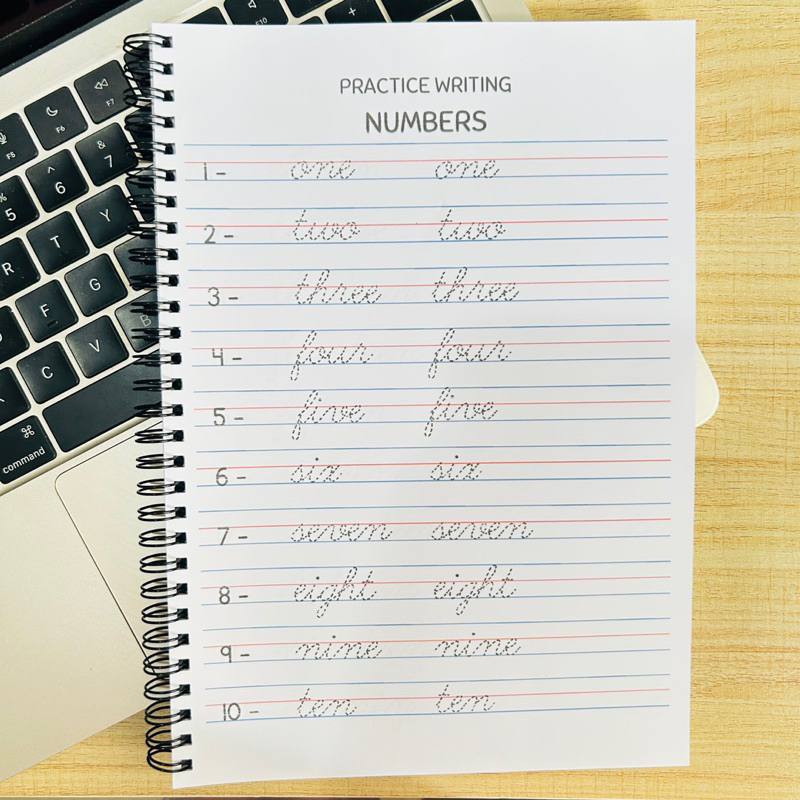 PRACTICE WRITING
NUMBERS
1 - one one
2 - two two
3 - three three
4 - four four
5 - five five
6 - six six
7 - seven seven
8 - eight eight
9 - nine nine
10 - ten ten
F10
F7
F6
F5
&
7
^
6
%
5
Y
T
R
G
F
B
V
C
⌘
command
+